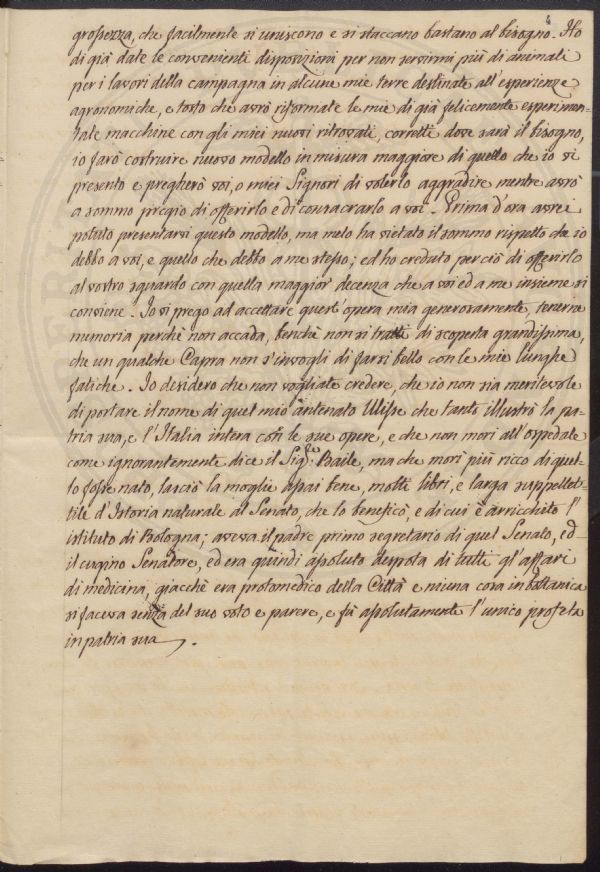 4
grossezza, che facilmente si uniscono e si staccano bastano al bisogno. Ho
di già date le convenienti disposizioni per non servirmi più di animali
per i lavori della campagna in alcune mie terre destinate all'esperienze
agronomiche, e tosto che avrò riformate le mie di già felicemente esperimen-
tate macchine con gli miei nuovi ritrovati, corretti dove sarà il bisogno,
io farò costruire nuovo modello in misura maggiore di quello che io vi
presento e pregherò voi, o miei Signori di volerlo aggradire mentre avrò
a sommo pregio di offerirlo e di consacrarlo a voi. Prima d'ora avrei
potuto presentarvi questo modello, ma melo ha vietato il sommo rispetto che io
debbo a voi, e quello che debbo a me stesso; ed ho creduto perciò di offerirlo
al vostro sguardo con quella maggior decenza che a voi ed a me insieme si
conviene. Io vi prego ad accettare quest'opera mia generosamente, tenerne
memoria perchè non accada, benchè non si tratti di scoperta grandissima,
che un qualche Capra non s'invogli di farsi bello con le mie lunghe
fatiche. Io desidero che non vogliate credere, che io non sia meritevole
di portare il nome di quel mio antenato Ulisse che tanto illustrò la pa-
tria sua, e l'Italia intera con le sue opere, e che non morì all'ospedale
come ignorantemente dice il Sig.re Baile, ma che morì più ricco di quel-
lo fosse nato, lasciò la moglie assai bene, molti libri, e larga suppellet-
tile d'Istoria naturale al Senato, che lo beneficò, e di cui è arricchito l'
istituto di Bologna; aveva il padre primo segretario di quel Senato, ed
il cugino Senatore, ed era quindi assoluto despota di tutti gl'affari
di medicina, giacchè era protomedico della Città e niuna cosa in bottanica
si faceva senza del suo voto e parere, e fù assolutamente l'unico profeta
in patria sua.